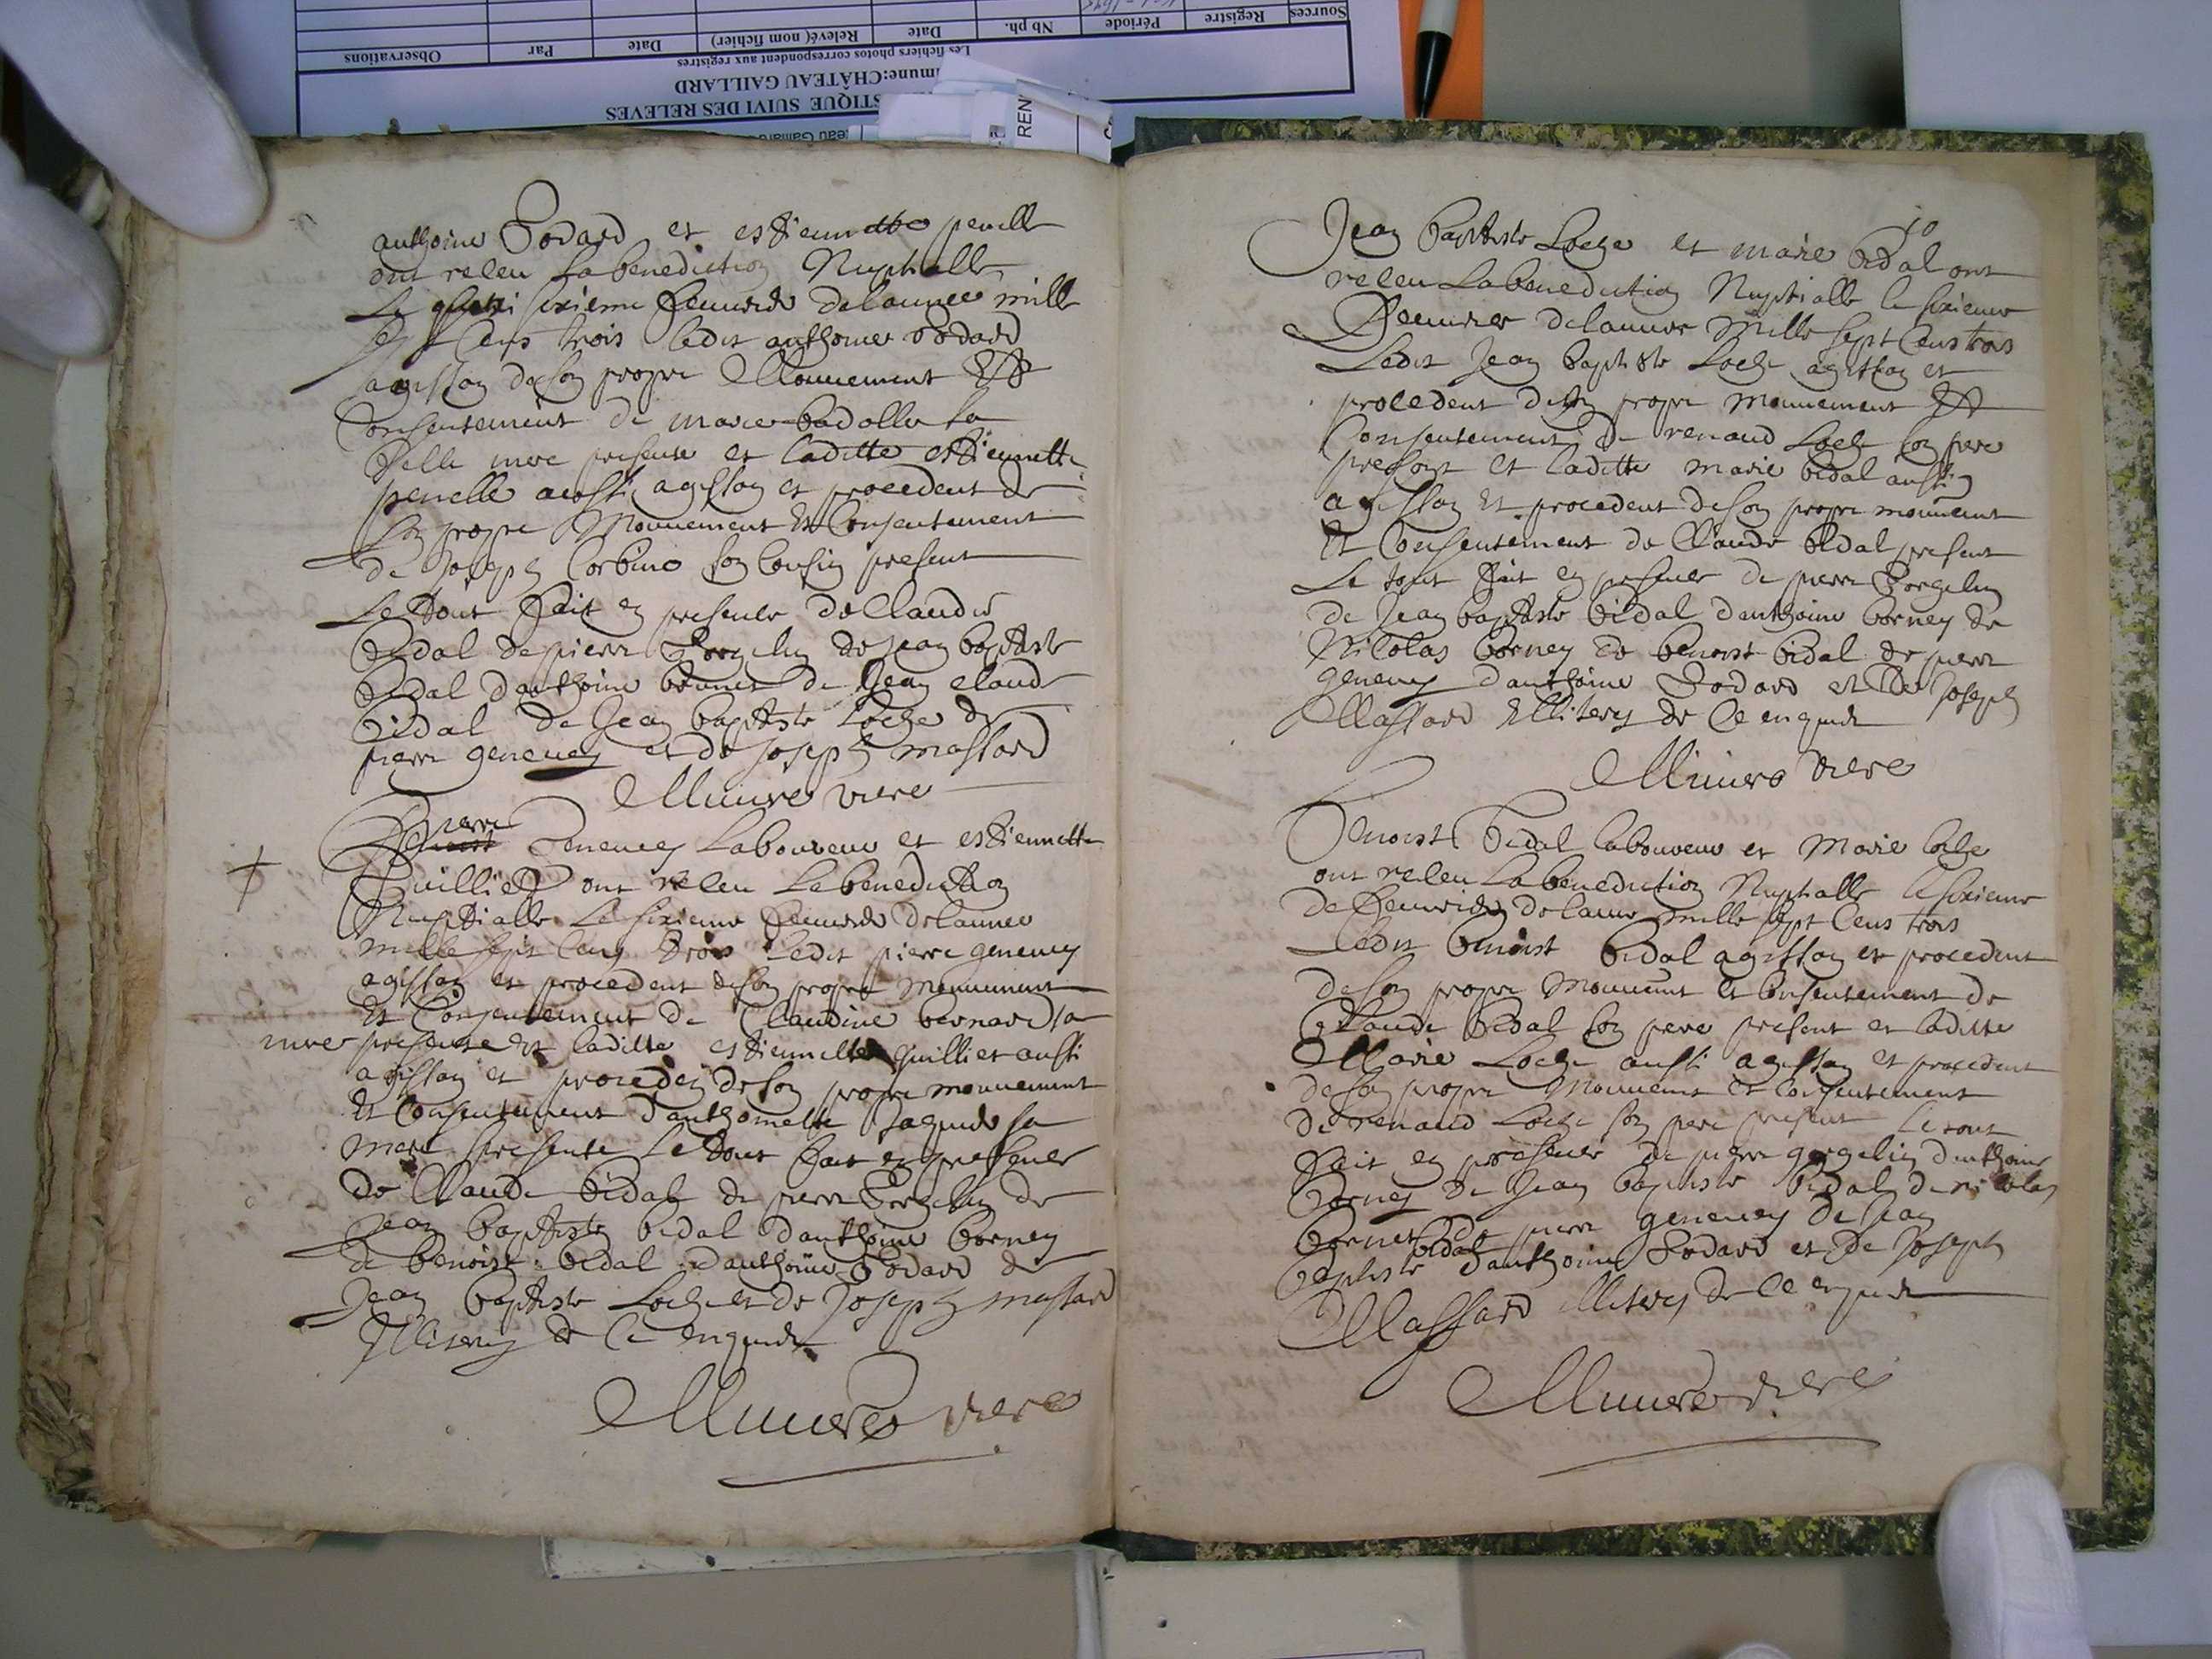 Sources
Registre
Période
Nb ph.
Date
Relevé( nom fichier)
Date
Par
Observations
Les fichiers photos correspondent aux registres
mune:CHÂTEAU GAILLARD
STIQUE SUIVI DES RELEVES
REN
anthoine Godard et estiennette penelle
ont receu La benediction Nuptialle
Le sixieme feuvrier de lannee mille
sept Cens trois ledit anthoine Godard
agissan de son propre Mouuement Et
Consentement de marie badolle sa
belle mere presente et laditte estiennette
penelle aussi agissan et procedent de
son propre Mouuement Et Consentement
de Joseph Corbino son Cousin present
Le tout fait en presence de Claude
bidal de pierre Gorgelin de Jean baptiste
bidal danthoine de Jean claude
bidal de Jean baptiste Loche de
pierre geneuey et de Joseph massard
Muniere vicre
pierre
Benoist Geneuey Laboureur et estiennette
Quillier ont receu La benediction
Nuptialle Le sixieme feuvrier de lannee
mille sept Cens trois ledit pierre geneuey
agissan et procedent de son propre Mouuement
Et Consentement de Claudine bernard sa
mere presente Et laditte estiennette Quillier aussi
agissan et proceden de son propre mouuement
Et Consentement danthoinette Jaquede sa
mere presente Le tout fait en presence
de Claude bidal de pierre Gorgelin de
Jean baptiste bidal danthoine borney
de benoist bidal danthoine Godard de
Jean baptiste Loche et de Joseph massard
Illiterez de Ce enquis
Muniere vicre
10
Jean baptiste Loche et marie bidal ont
receu La benediction Nuptialle le sixieme
feuvrier de lannee Mille sept Cens trois
Ledit Jean baptiste Loche agissan et
procedent de son propre mouuement Et
Consentement de renaud Loche son pere
present et laditte marie bidal aussi
agissan Et procedent de son propre mouuemt
Et Consentement de Claude bidal present
Le tout fait en presence de pierre Gorgelin
de Jean baptiste bidal danthoine borney de
Nicolas borney de benoist bidal de pierre
geneuey danthoine Godard et de Joseph
Massard Illiterez de Ce enquis
Muniere vicre
Benoist bidal laboureur et Marie loche
ont receu La benediction Nuptialle le sixieme
de feuvrier de lannee mille sept Cens trois
Ledit benoist bidal agissan et procedent
de son propre Mouuemt Et Consentement de
Claude bidal son pere present et laditte
Marie Loche aussi agissan et procedent
de son propre Mouuemt Et Consentement
de renaud Loche son pere present Le tout
fait en presence de pierre gorgelin danthoine
borney de Jean baptiste bidal de nicolas
borney de pierre geneuey de Jean
baptiste bidal danthoine Godard et de Joseph
Massard illiterez de Ce enquis
Muniere vicre